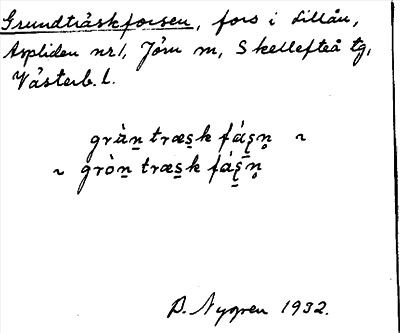 Grundträskforsen, fors i Lillån,
Aspliden nr 1, Jörn sn, Skellefteå tg,
Västerb. l.
gràn̠ træs̠k fás̠n̥ ~
~ gròn̠ træs̠k fás̠n̥
D. Nygren 1932.